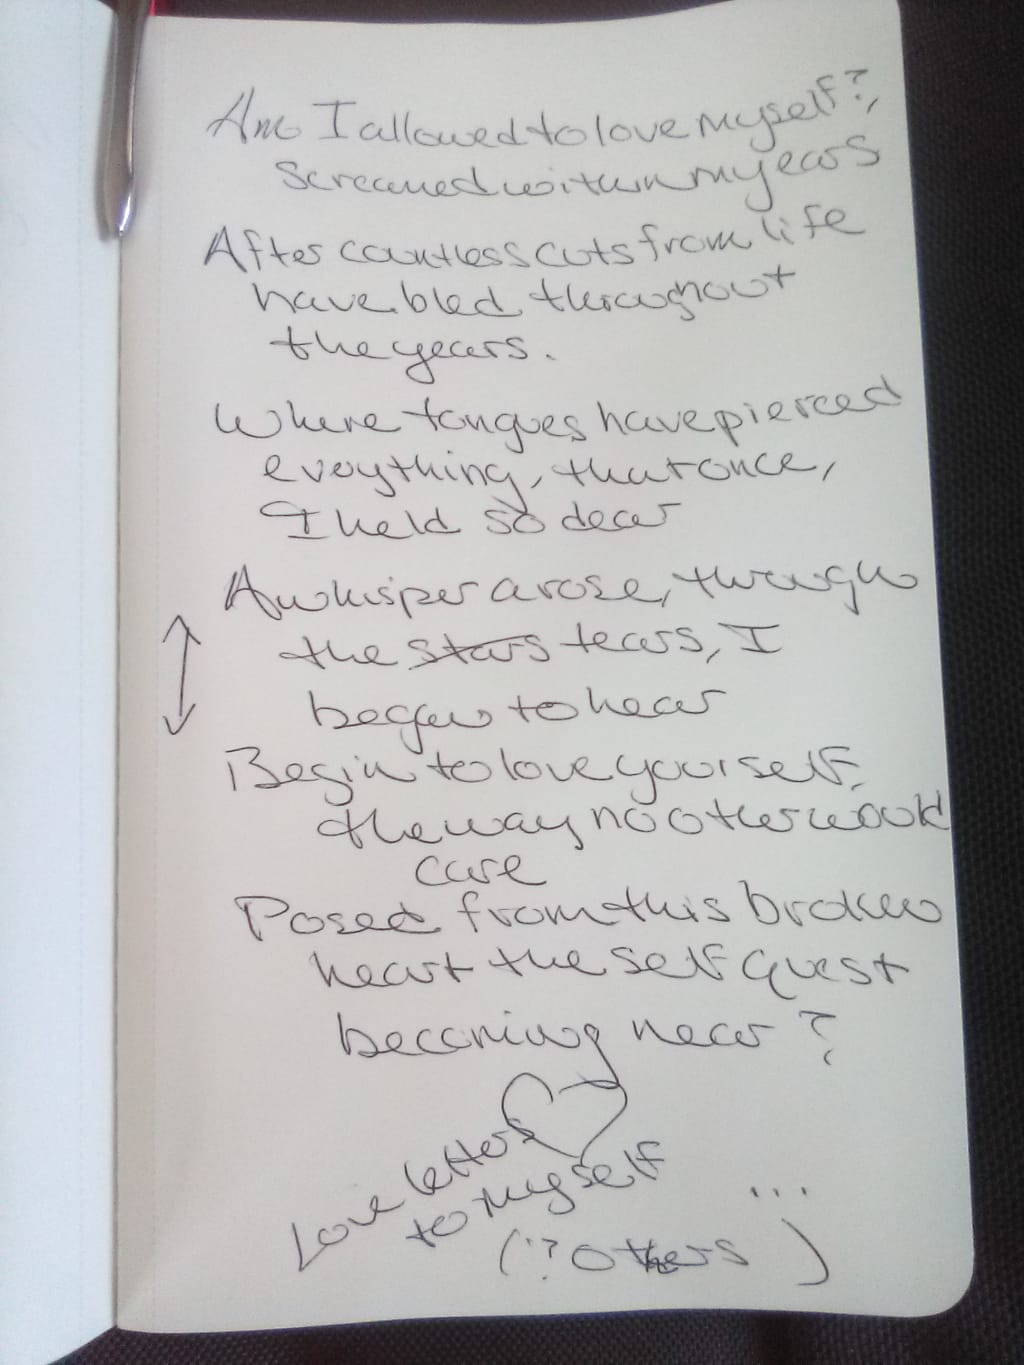 Am I allowed to love myself?,
Screamed within my ears
After countless cuts from life
have bled throughout
the years.
Where tongues have pierced
everything, that once,
I held so dear
A whisper arose, through
the stars tears, I
began to hear
Begin to love yourself,
the way no other would
care
Posed from this broken
heart the self quest
becoming near?
Love letters
to myself
...
(? Others )